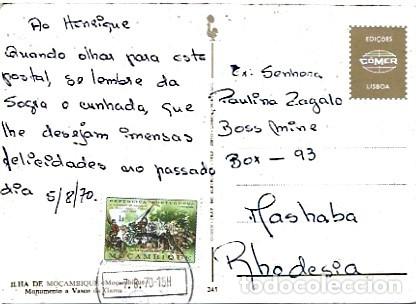 Ao Henrique
Quando olhar para este
postal, se lembre da
Sogra e cunhada, que
lhe desejam imensas
felicidades no passado
dia 5/8/70.
EDIÇÕES
CÓMER
LISBOA
Ex. Senhora
Paulina Zagalo
Boss Mine
Box - 93
Mashaba
Rhodesia
REPÚBLICA PORTUGUESA
MOÇAMBIQUE
70-15H
ILHA DE MOÇAMBIQUE (Moçambique)
Monumento a Vasco da Gama
241
todocoleccion